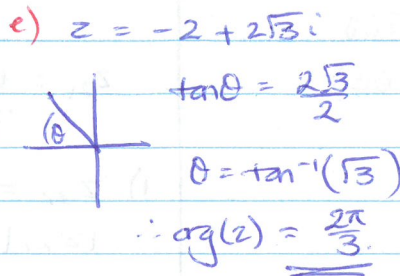 e) z = -2 + 2√3 i
tanθ = 2√3/2
(θ
θ = tan⁻¹(√3)
∴ arg(z) = 2π/3.